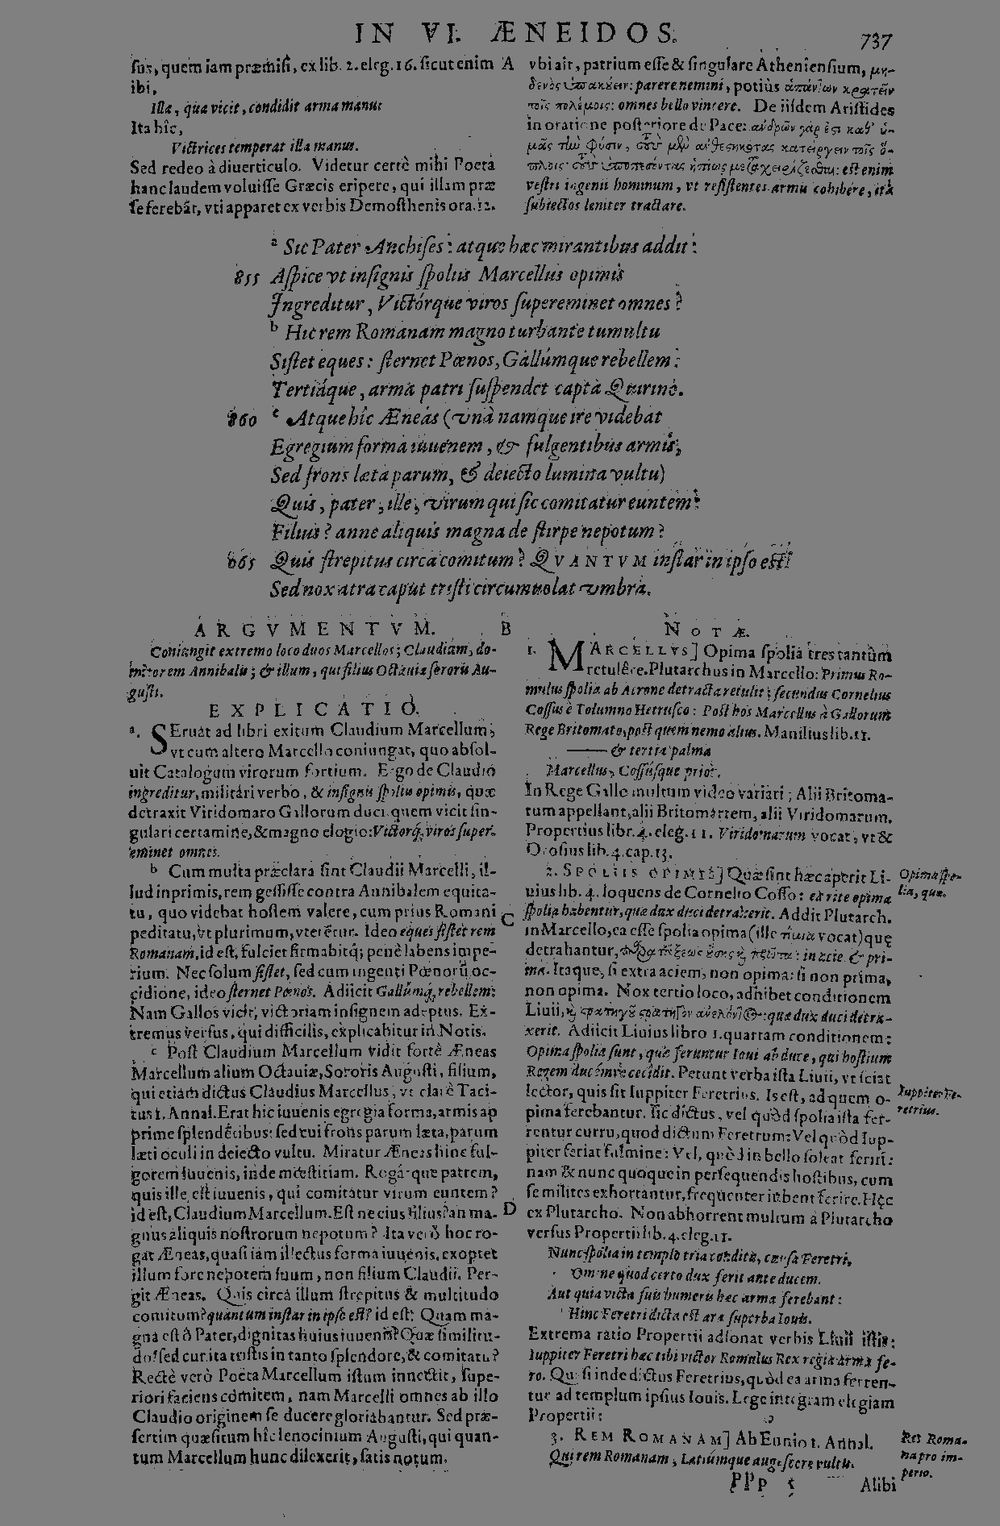 IN VI. ÆNEIDOS. 737
sus, quem iam præmisi, ex lib. 2. eleg. 16. sicut enim
ibi,
Illa, qua vicit, condidit arma manus
Ita hîc,
Victrices temperat illa manus.
Sed redeo à diuerticulo. Videtur certè mihi Poeta
hanc laudem voluisse Græcis eripere, qui illam præ
se ferebãt, vti apparet ex verbis Demosthenis ora. 12.
A
vbi ait, patrium esse & singulare Atheniensium, μη-
δενὸς ὑπακούειν: parere nemini, potiùs
τοῖς πολέμοις: omnes bello vincere. De iisdem Aristides
in oratione posteriore de Pace: ἀνδρῶν γάρ ἐστι καθ' ὑ-
μᾶς τὼ φύσιν,
est enim
vestri ingenii hominum, vt resistentes armis cohibere, ità
subiectos leniter tractare.
a Sic Pater Anchises: atque hæc mirantibus addit:
855 Aspice vt insignis spoliis Marcellus opimis
Ingreditur, Victórque viros supereminet omnes?
b Hic rem Romanam magno turbante tumultu
Sistet eques: sternet Pœnos, Gallúmque rebellem:
Tertiáque, arma patri suspendet capta Quirino.
860 c Atque hîc Æneas (vnà namque ire videbat
Egregium forma iuuenem, & fulgentibus armis,
Sed frons læta parum, & deiecto lumina vultu)
Quis, pater, ille, virum qui sic comitatur euntem?
Filius? anne aliquis magna de stirpe nepotum?
865 Quis strepitus circa comitum? QVANTVM instar in ipso est!
Sed nox atra caput tristi circumuolat vmbra.
ARGVMENTVM.
Coniungit extremo loco duos Marcellos; Claudium, do-
mitorem Annibalis; & illum, qui filius Octauiæ sororis Au-
gusti.
EXPLICATIO.
a. SEruat ad libri exitum Claudium Marcellum;
vt cum altero Marcello coniungat, quo absol-
uit Catalogum virorum fortium. Ergo de Claudio
ingreditur, militari verbo, & insignis spoliis opimis, quæ
detraxit Viridomaro Gallorum duci quem vicit sin-
gulari certamine, & magno elogio: Victorq́, viros super-
eminet omnes.
b Cum multa præclara sint Claudii Marcelli, il-
lud inprimis, rem gessisse contra Annibalem equita-
tu, quo videbat hostem valere, cum prius Romani
peditatu, vt plurimum, vterẽtur. Ideo eques sistet rem
Romanam, id est, fulciet firmabitq́; penè labens impe-
rium. Nec solum sistet, sed cum ingenti Pœnorũ oc-
cidione, ideo sternet Pœnos. Adiicit Gallúmq́, rebellem:
Nam Gallos vicit, victoriam insignem adeptus. Ex-
tremus versus, qui difficilis, explicabitur in Notis.
c Post Claudium Marcellum vidit fortè Æneas
Marcellum alium Octauiæ, Sororis Augusti, filium,
qui etiam dictus Claudius Marcellus, vt clarè Taci-
tus 1. Annal. Erat hic iuuenis egregia forma, armis ap
prime splendẽtibus: sed cui frons parum læta, parum
læti oculi in deiecto vultu. Miratur Æneas hinc ful-
gorem iuuenis, inde mœstitiam. Rogátque patrem,
quis ille est iuuenis, qui comitatur virum euntem?
id est, Claudium Marcellum. Est ne eius filius? an ma-
gnus aliquis nostrorum nepotum? Ita verò hoc ro-
gat Æneas, quasi iam illectus forma iuuenis, exoptet
illum fore nepotem suum, non filium Claudii. Per-
git Æneas. Quis circà illum strepitus & multitudo
comitum? quantum instar in ipso est? id est: Quam ma-
gna est ô Pater, dignitas huius iuuenis? Quæ similitu-
do? sed cur ita tristis in tanto splendore, & comitatu?
Rectè verò Poëta Marcellum istum innectit, supe-
riori faciens comitem, nam Marcelli omnes ab illo
Claudio originem se ducere gloriabantur. Sed præ-
sertim quæsitum hîc lenocinium Augusti, qui quan-
tum Marcellum hunc dilexerit, satis notum.
B
C
D
NOTÆ.
1. MARCELLVS] Opima spolia tres tantùm
retulêre. Plutarchus in Marcello: Primus Ro-
mulus spolia ab Acrone detracta retulit; secundus Cornelius
Cossus è Tolumno Hetrusco: Post hos Marcellus à Gallorum
Rege Britomato, post quem nemo alius. Manilius lib. 11.
—— & tertia palma
Marcellus, Cossúsque prior.
In Rege Gallo multum video variari; Alii Britoma-
tum appellant, alii Britomartem, alii Viridomarum.
Propertius libr. 4. eleg. 11. Viridomarum vocat, vt &
Orosius lib. 4. cap. 13.
2. SPOLIIS OPIMIS] Quæ sint hæc aperit Li-
uius lib. 4. loquens de Cornelio Cosso: ea rite opima
spolia habentur, quæ dux duci detraxerit. Addit Plutarch.
in Marcello, ea esse spolia opima (ille vocat) quę
detrahantur, in acie & pri-
ma. Itaque, si extra aciem, non opima: si non prima,
non opima. Nox tertio loco, adhibet conditionem
Liuii, quæ dux duci detra-
xerit. Adiicit Liuius libro 1. quartam conditionem:
Opima spolia sunt, quæ feruntur Ioui ab duce, qui hostium
Regem ducémve cecidit. Petunt verba ista Liuii, vt sciat
lector, quis sit Iuppiter Feretrius. Is est, ad quem o-
pima ferebantur. Sic dictus, vel quòd spolia ista fer-
rentur curru, quod dictum Feretrum: Vel quòd Iup-
piter feriat fulmine: Vel, quòd in bello soleat feriri:
nam & nunc quoque in persequendis hostibus, cum
se milites exhortantur, frequenter iubent ferire. Hęc
ex Plutarcho. Non abhorrent multum à Plutarcho
versus Propertii lib. 4. eleg. 11.
Nunc spolia in templo tria condita, causa Feretri,
Omine quod certo dux ferit ante ducem.
Aut quia victa suis humeris hæc arma ferebant:
Hinc Feretri dicta est ara superba Iouis.
Extrema ratio Propertii adsonat verbis Liuii istis:
Iuppiter Feretri hæc tibi victor Romulus Rex regia arma fe-
ro. Quasi inde dictus Feretrius, quòd ea arma ferren-
tur ad templum ipsius Iouis. Lege integram elegiam
Propertii:
3. REM ROMANAM] Ab Ennio 1. Annal.
Qui rem Romanam, Latiúmque augescere vultis.
Opima spo-
lia, quæ.
Iuppiter Fe-
retrius.
Res Roma-
na pro im-
perio.
PPp 5 Alibi